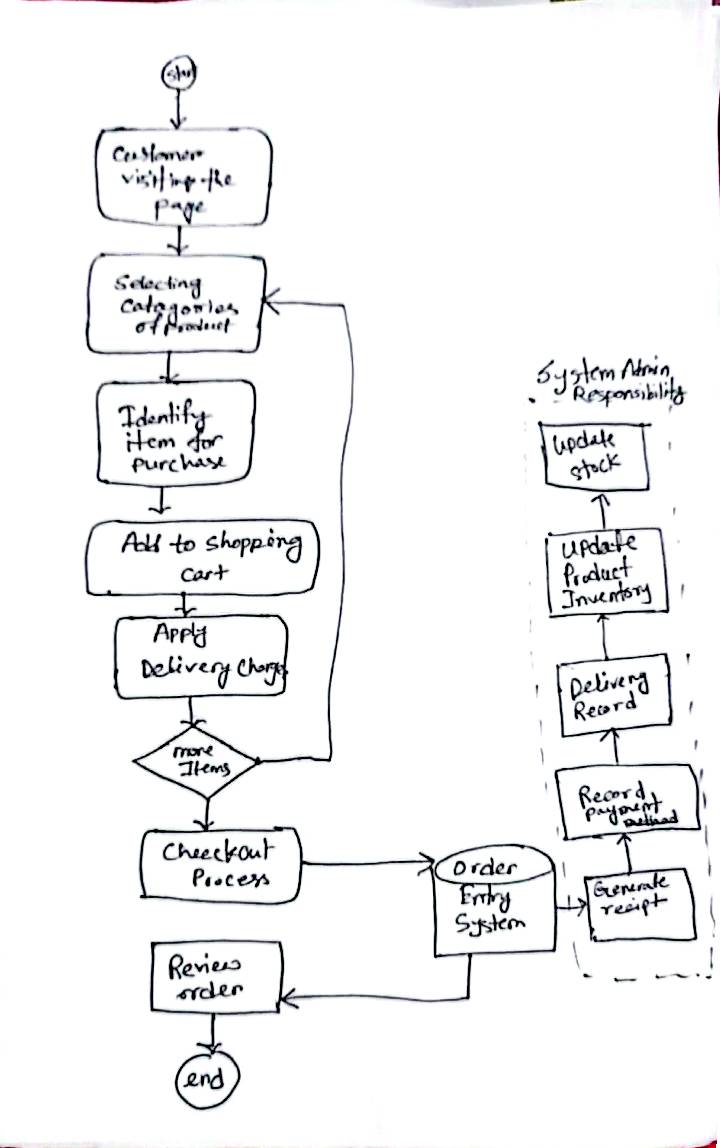 start
Customer
visiting the
page
Selecting
Catagories
of product
Identify
item for
purchase
Add to shopping
cart
Apply
Delivery Charge
more
Items
Cheeckout
Process
Order
Entry
System
Review
order
end
System Admin
Responsibility
update
stock
Update
Product
Inventory
Delivery
Record
Record
payment
method
Generate
recipt